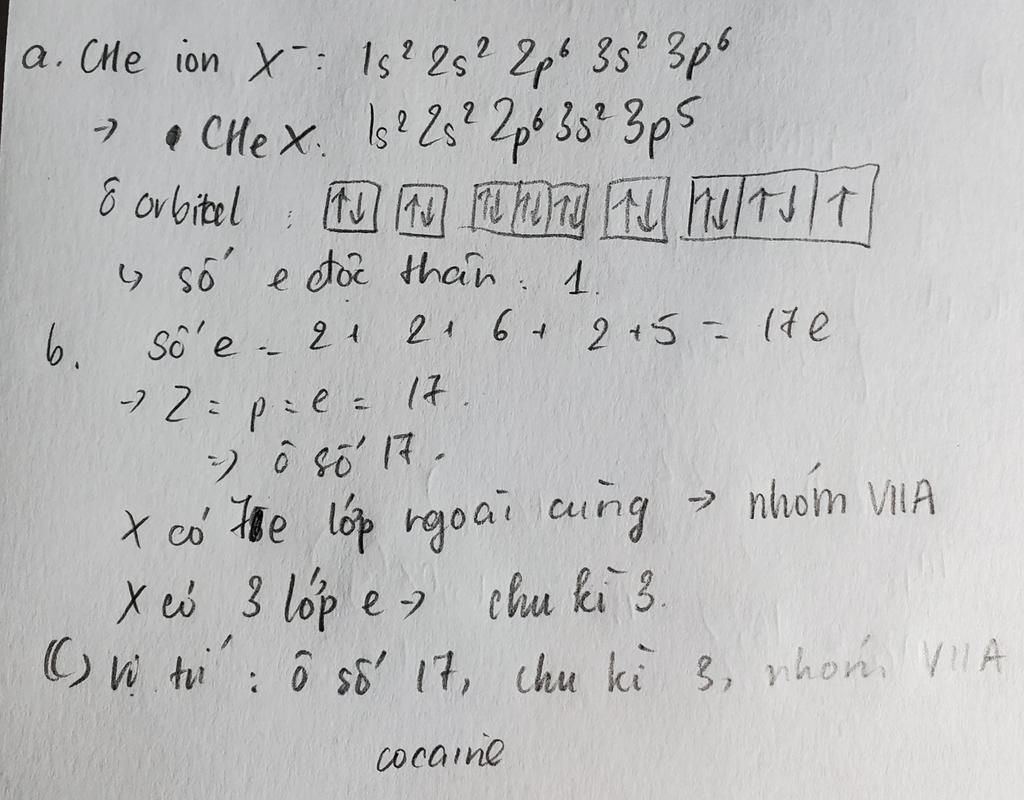 a. CHe ion X⁻: 1s² 2s² 2p⁶ 3s² 3p⁶
→ • CHe X: 1s² 2s² 2p⁶ 3s² 3p⁵
ô orbital : ↑↓ ↑↓ ↑↓ ↑↓ ↑↓ ↑↓ ↑↓ ↑↓ ↑
↳ số e độc thân: 1.
b. Số e = 2 + 2 + 6 + 2 + 5 = 17e
→ Z = p = e = 17.
=> ô số 17.
X có 7e lớp ngoài cùng → nhóm VIIA
X có 3 lớp e → chu kì 3.
(C) Vị trí : ô số 17, chu kì 3, nhóm VIIA
cocaine